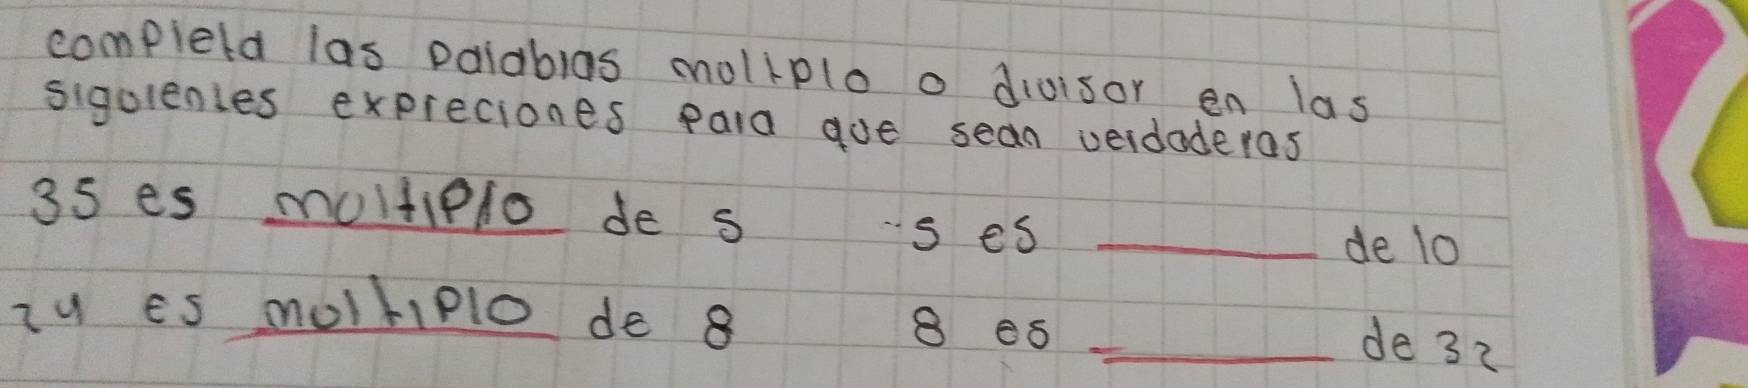 completa las palabras moltiplo o divisor en las
sigoientes expreciones para que sean verdaderas
35 es moltiplo de 5 5 es ______ de 10
24 es moltiplo de 8 8 es ______ de 32